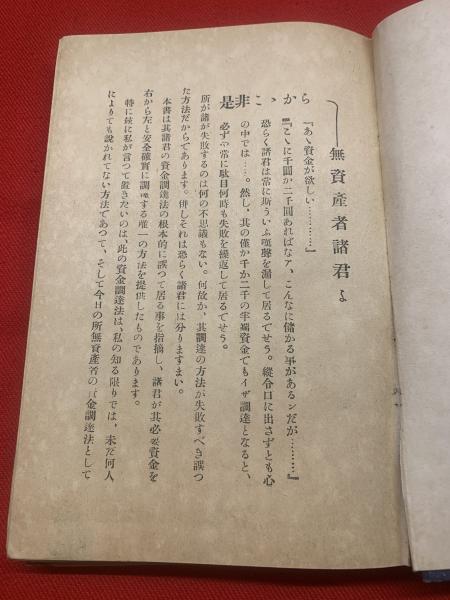 無資產者諸君よ
是非こゝから
『あゝ資金が欲しい…………』
『こゝに千圓か二千圓あればなア、こんなに儲かる事があるンだが………』
恐らく諸君は常に斯ういふ嘆聲を漏して居るでせう。縱令口に出さずとも心
の中では……。然し、其の僅か千か二千の半端資金でもイザ調達となると、
必ずや常に駄目何時も失敗を繰返して居るでせう。
所が諸が失敗するのは何の不思議もない。何故か、其調達の方法が失敗すべき誤つ
た方法だからであります。併しそれは恐らく諸君には分りますまい。
本書は其諸君の資金調達法の根本的に誤つて居る事を指摘し、諸君が其必要資金を
右から左と安全確實に調達する唯一の方法を提供したものであります。
特に玆に私が言つて置きたいのは、此の資金調達法は、私の知る限りでは、未だ何人
によりても說かれてない方法であつて、そして今日の所無資產者の資金調達法として